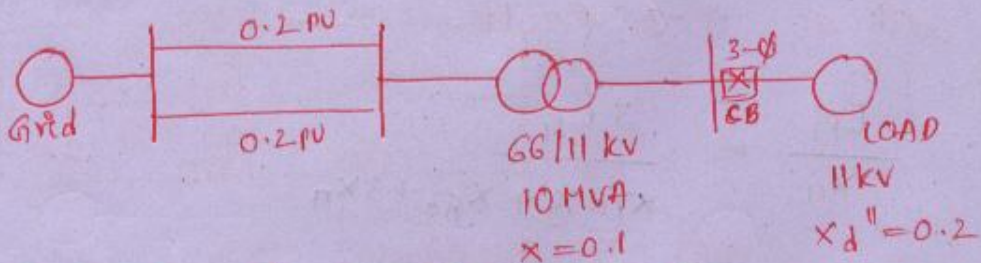 0.2 PU
Grid
0.2 PU
66/11 KV
10 MVA.
X = 0.1
3-φ
CB
LOAD
11 KV
Xd" = 0.2